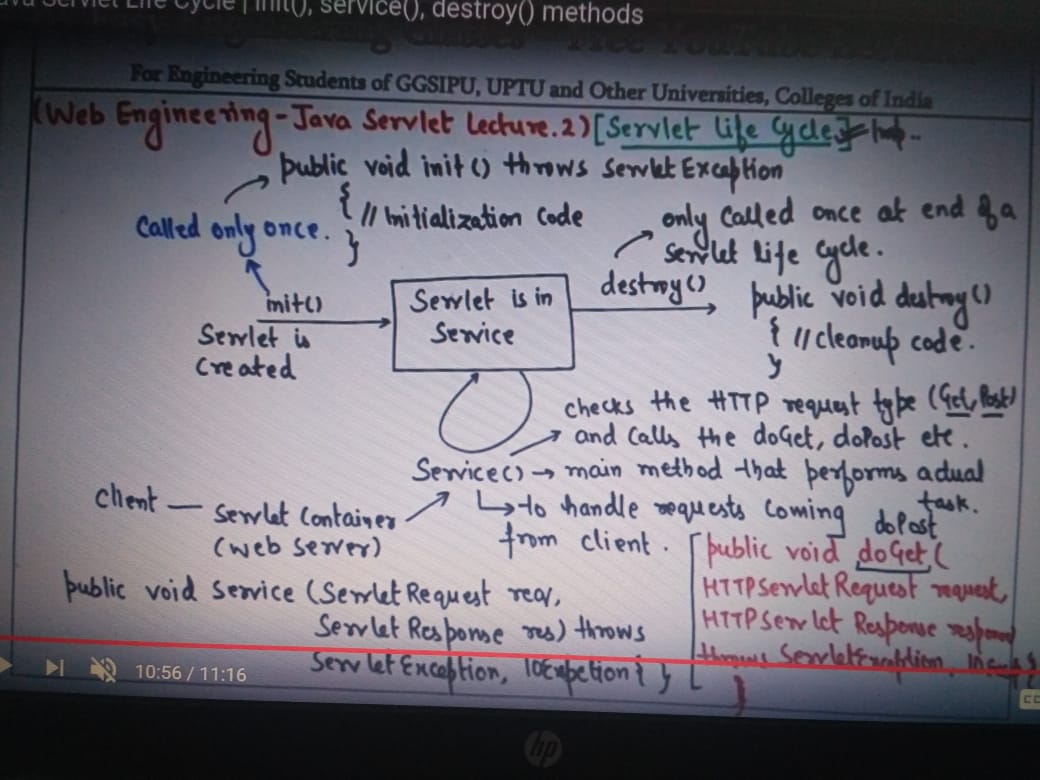 Servlet Life Cycle | init(), service(), destroy() methods
For Engineering Students of GGSIPU, UPTU and Other Universities, Colleges of India
(Web Engineering-Java Servlet Lecture.2) [Servlet Life Cycle]
public void init() throws Servlet Exception
{ // Initialization Code
}
Called only once.
only Called once at end of a
servlet life cycle.
init()
Servlet is
Created
Servlet is in
Service
destroy()
public void destroy()
{ // cleanup code.
}
checks the HTTP request type (Get, Post)
and Calls the doGet, doPost etc.
Service() → main method that performs actual
task.
↳ to handle requests Coming
from client.
Client — Servlet Container
(web server)
public void Service (Servlet Request req,
Servlet Response res) throws
Servlet Exception, IOExpection { }
doPost
[public void doGet(
HTTPServlet Request request,
HTTPServlet Response
throws Servlet
}
10:56 / 11:16
CC
hp